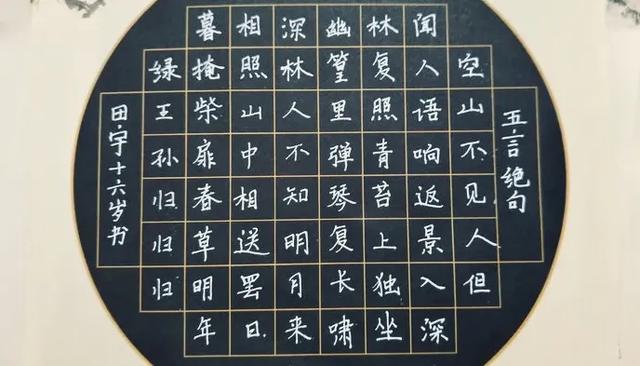 五言绝句
空山不见人但
闻人语响返景入深
林复照青苔上独坐
幽篁里弹琴复长啸
深林人不知明月来
相照山中相送罢日
暮掩柴扉春草明年
绿王孙归归归
田宇十六岁书